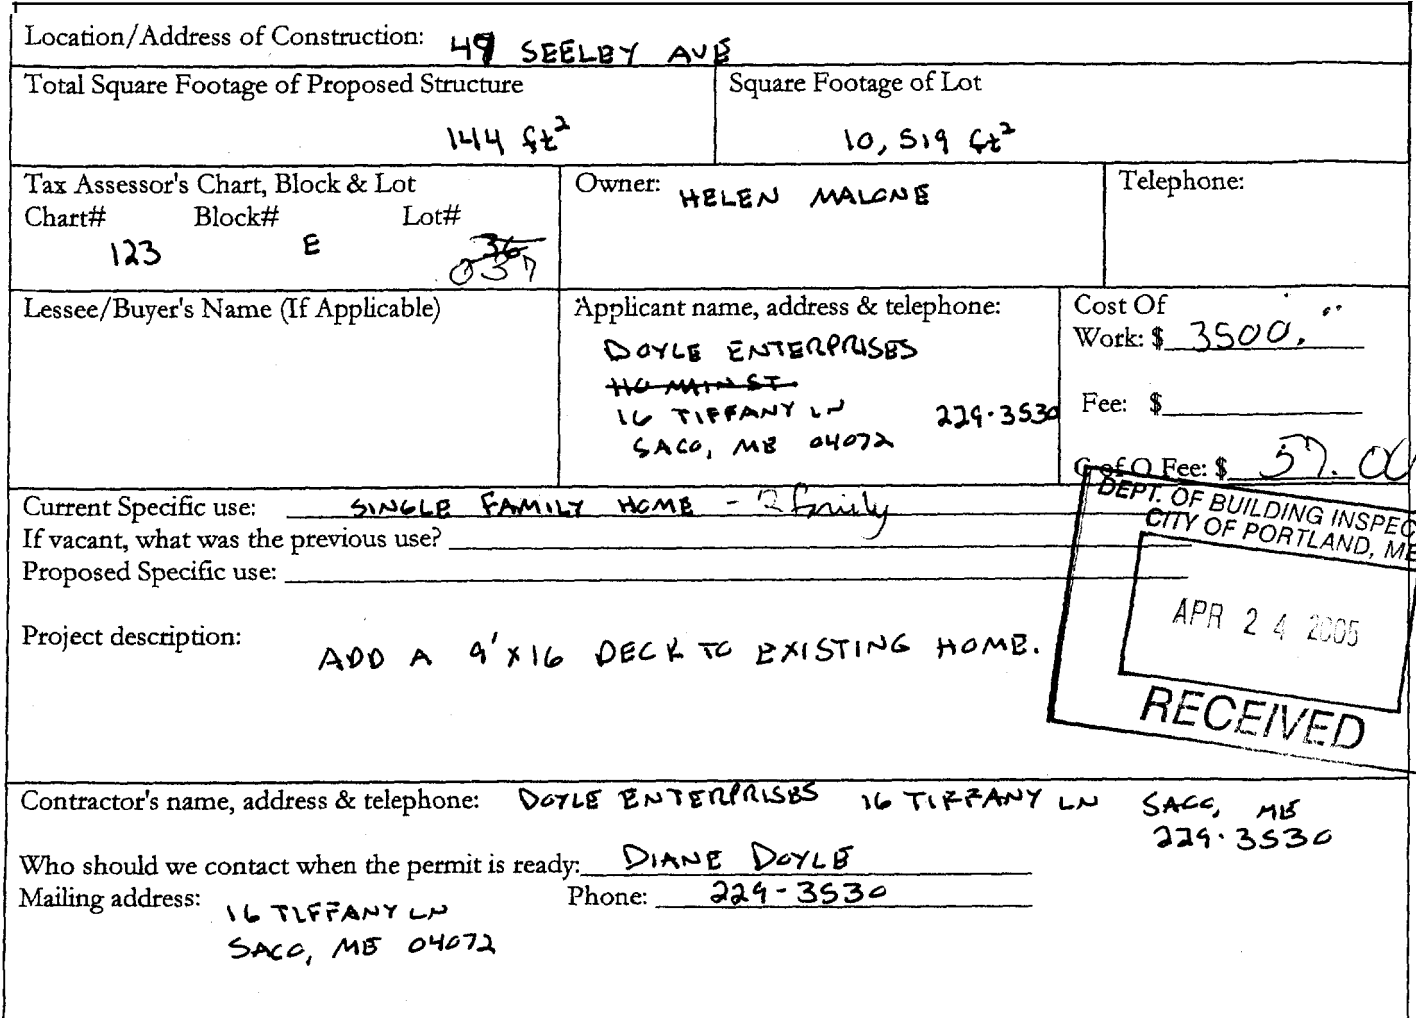 Location/Address of Construction: 49 SEELEY AVE
Total Square Footage of Proposed Structure
144 ft²
Square Footage of Lot
10,519 ft²
Tax Assessor's Chart, Block & Lot
Chart# Block# Lot#
123 E 36
037
Owner: HELEN MALONE
Telephone:
Lessee/Buyer's Name (If Applicable)
Applicant name, address & telephone:
DOYLE ENTERPRISES
MAIN ST.
16 TIFFANY LN 229-3530
SACO, ME 04072
Cost Of
Work: $ 3500.
Fee: $
C of O Fee: $ 57.00
Current Specific use: SINGLE FAMILY HOME - 2 family
If vacant, what was the previous use?
Proposed Specific use:
Project description: ADD A 9'X16 DECK TO EXISTING HOME.
DEPT. OF BUILDING INSPEC
CITY OF PORTLAND, ME
APR 24 2005
RECEIVED
Contractor's name, address & telephone: DOYLE ENTERPRISES 16 TIFFANY LN SACO, ME
229-3530
Who should we contact when the permit is ready: DIANE DOYLE
Mailing address: Phone: 229-3530
16 TIFFANY LN
SACO, ME 04072